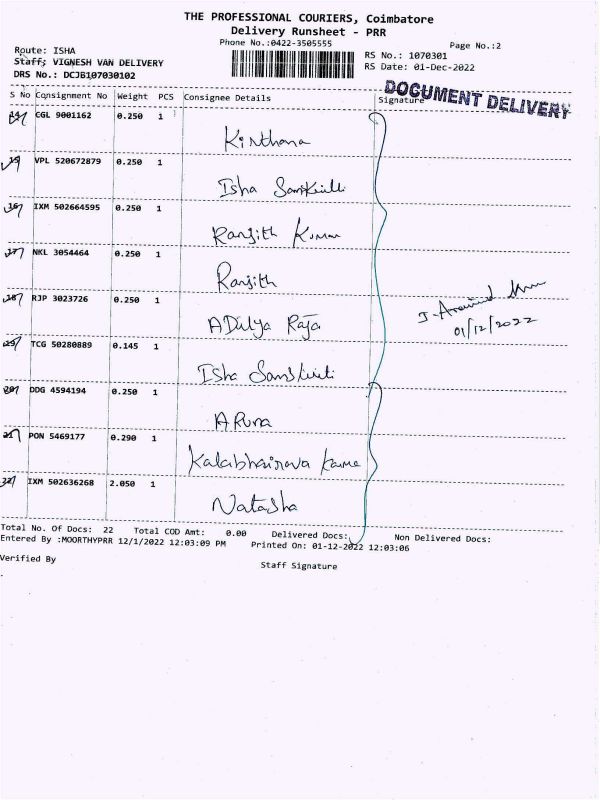 THE PROFESSIONAL COURIERS, Coimbatore
Delivery Runsheet - PRR
Phone No.:0422-3505555
Page No.:2
Route: ISHA
Staff: VIGNESH VAN DELIVERY
DRS No.: DCJB107030102
RS No.: 1070301
RS Date: 01-Dec-2022
DOCUMENT DELIVERY
S No Consignment No Weight PCS Consignee Details Signature
14 CGL 9001162 0.250 1
Kirthana
15 VPL 520672879 0.250 1
Isha Samskriti
16 IXM 502664595 0.250 1
Ranjith Kumar
17 NKL 3054464 0.250 1
Ranjith
18 RJP 3023726 0.250 1
ADitya Raja
19 TCG 50280889 0.145 1
Isha Samskriti
20 DDG 4594194 0.250 1
ARuna
21 PON 5469177 0.290 1
Kalabhairava Karma
22 IXM 502636268 2.050 1
Natasha
01/12/2022
Total No. Of Docs: 22 Total COD Amt: 0.00 Delivered Docs: Non Delivered Docs:
Entered By :MOORTHYPRR 12/1/2022 12:03:09 PM Printed On: 01-12-2022 12:03:06
Verified By
Staff Signature